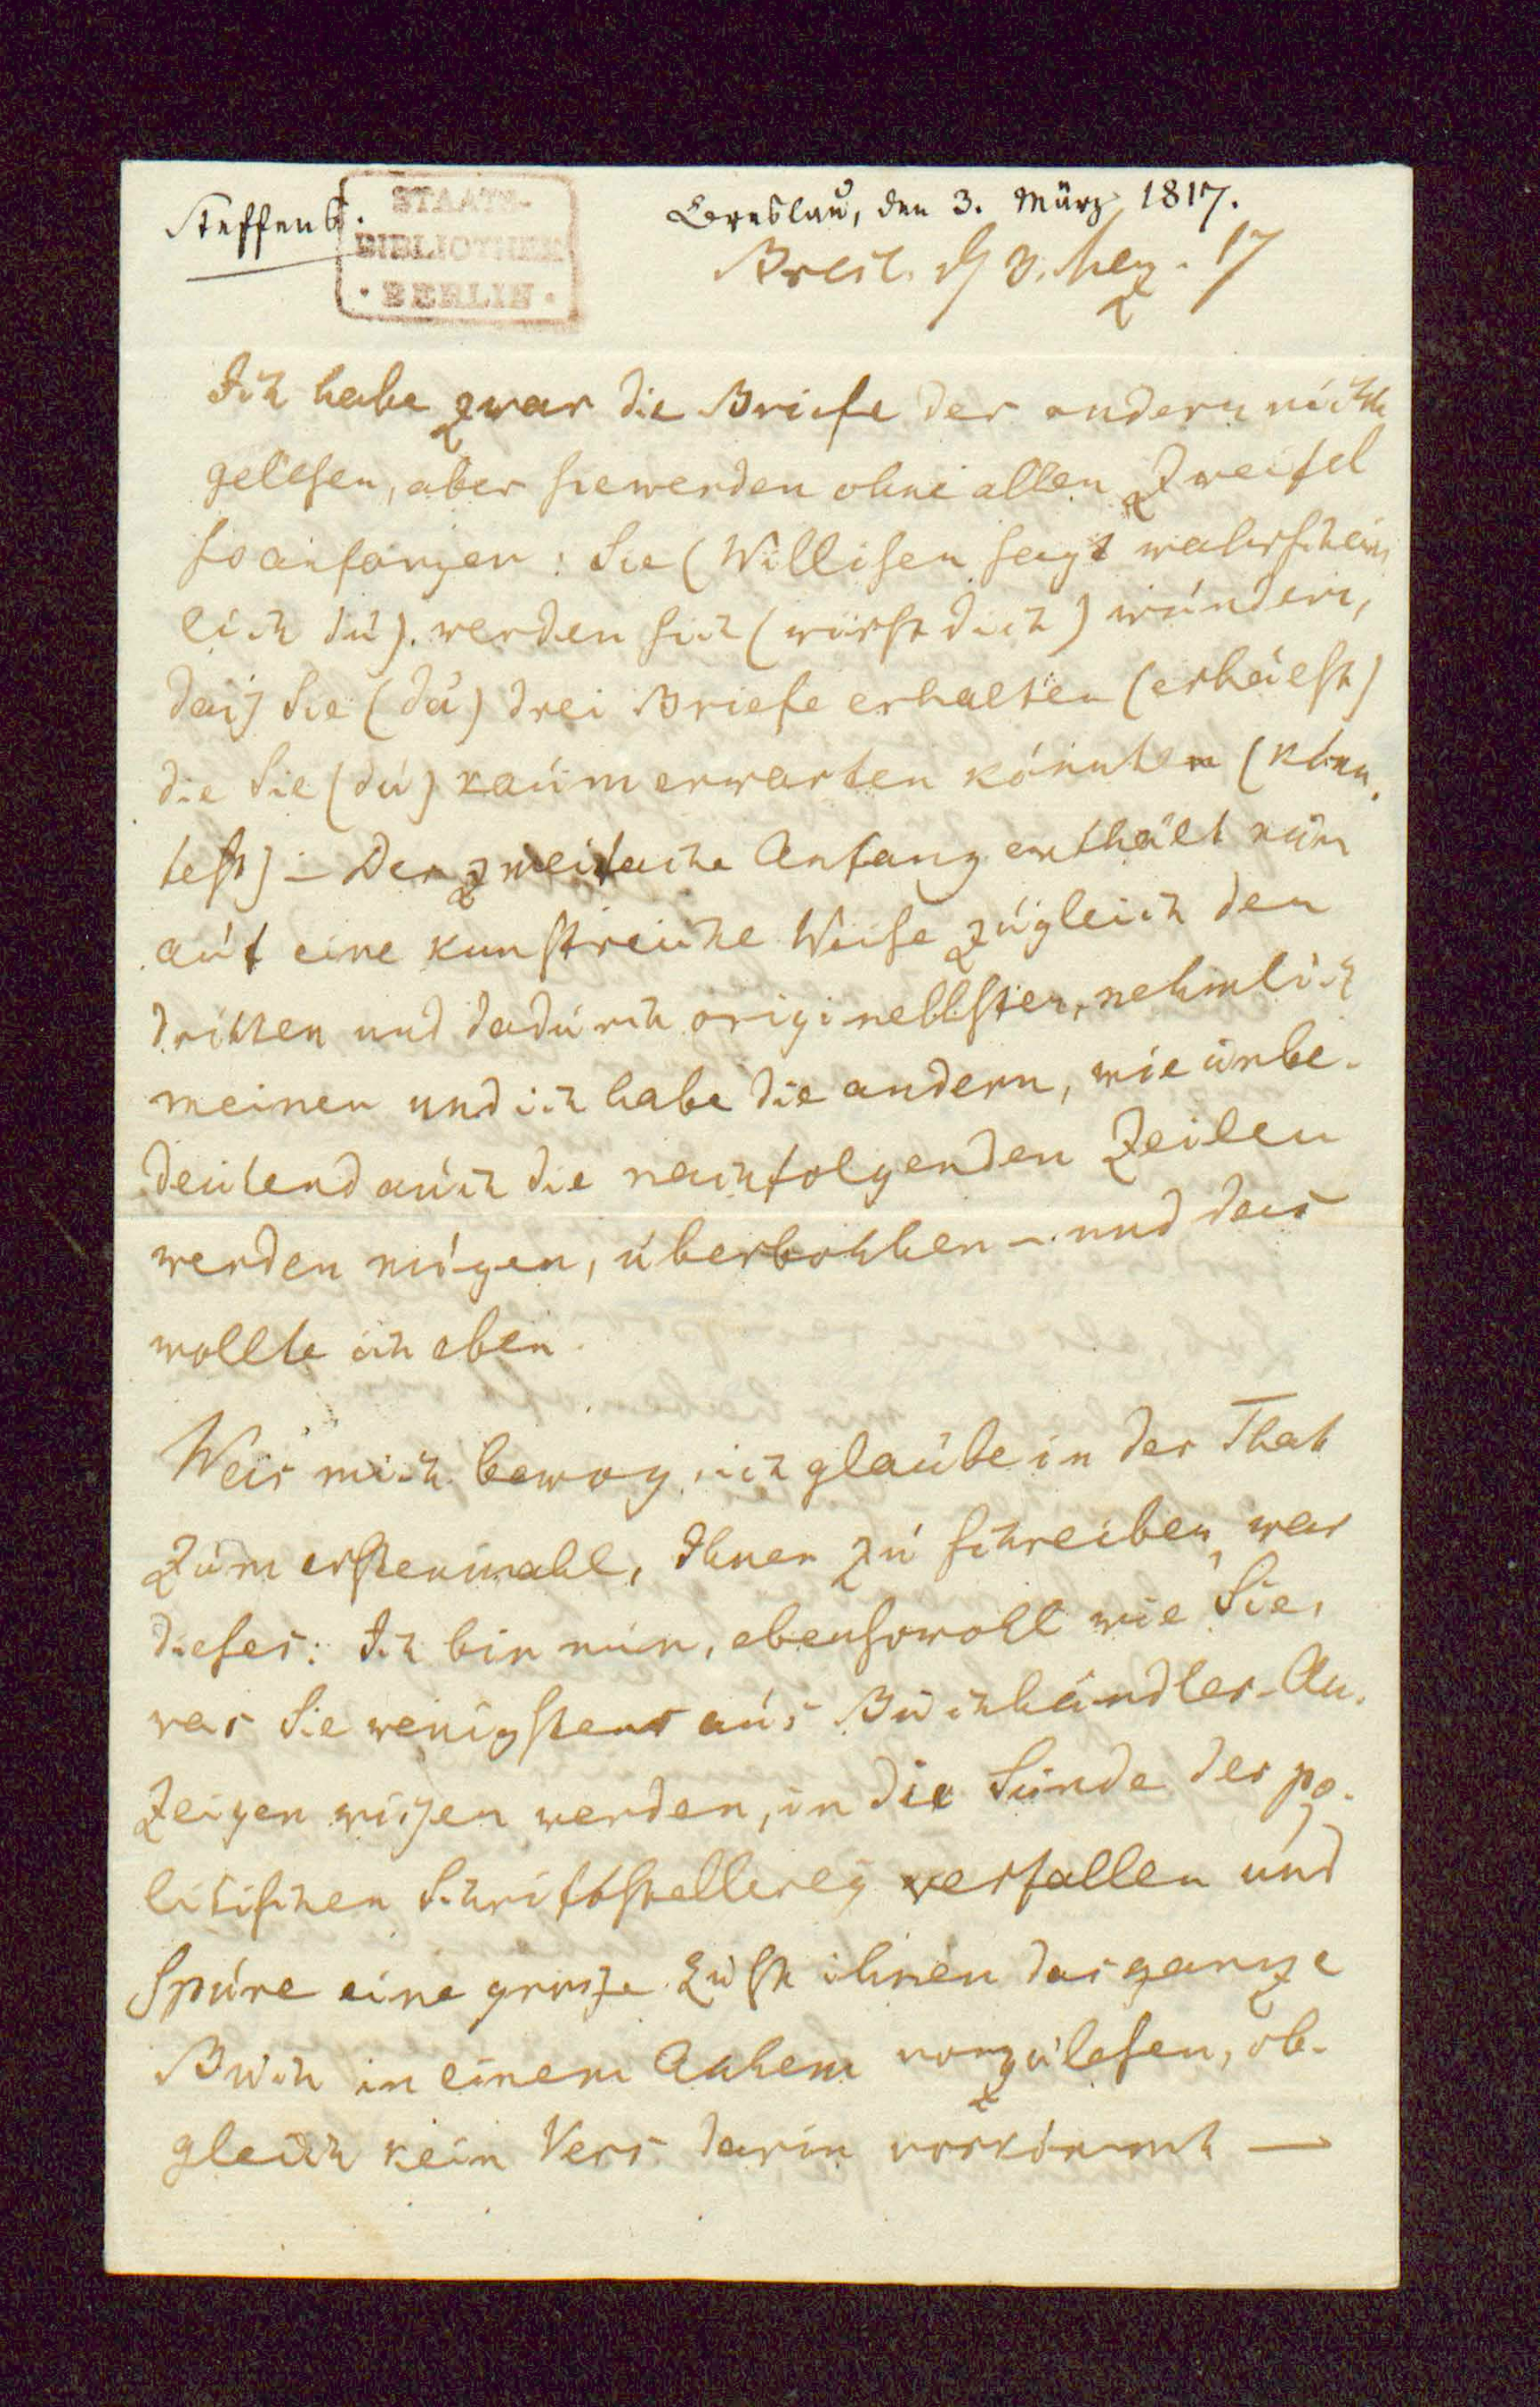 Steffens.
STAATS-
BIBLIOTHEK
· BERLIN ·
Breslau, den 3. März 1817.
Bresl. d 3. Merz. 17
Ich habe zwar die Briefe der andern nicht
gelesen, aber sie werden ohne allen Zweifel
so anfangen: Sie (Willisen sagt wahrschein
lich du). werden sich (wirst dich) wundern,
daß Sie (du) drei Briefe erhalten (erhälst)
die Sie (du) kaum erwarten könnten (könn.
test) – Der zweifache Anfang enthält nun
auf eine kunstreiche Weise zugleich den
dritten und dadurch originellsten, nehmlich
meinen und ich habe die andern, wie unbe-
deutend auch die nachfolgenden Zeilen
werden mögen, überbothen – und das
wollte ich eben.
Was mich bewog, ich glaube in der That
zum erstenmahl, Ihnen zu schreiben, war
dieses: Ich bin nun, ebensowohl wie Sie,
was Sie wenigstens aus Buchhändler-An.
zeigen wißen werden, in die Sünde der po-
litischen Schriftstellerey verfallen und
spüre eine große Lust ihnen das ganze
Buch in einem Athem vorzulesen, ob-
gleich kein Vers darin vorkömmt —